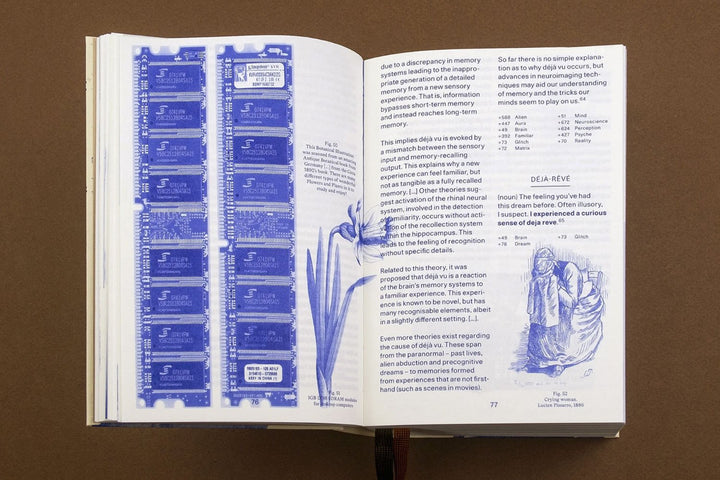 Fig. 50
This Botanical Illustration
was scanned from an amazing
Antique Botanical book from
Germany
1890's book. There are many
different types of wonderful
Flowers and Plants in it to
ready and enjoy!
Fig. 51
1GB DDR SDRAM module
for desktop computers
76
due to a discrepancy in memory
systems leading to the inappro-
priate generation of a detailed
memory from a new sensory
experience. That is, information
bypasses short-term memory
and instead reaches long-term
memory.
This implies déjà vu is evoked by
a mismatch between the sensory
input and memory-recalling
output. This explains why a new
experience can feel familiar, but
not as tangible as a fully recalled
memory. [...] Other theories sug-
gest activation of the rhinal neural
system, involved in the detection
of familiarity, occurs without acti-
vation of the recollection system
within the hippocampus. This
leads to the feeling of recognition
without specific details.
Related to this theory, it was
proposed that déjà vu is a reaction
of the brain's memory systems to
a familiar experience. This experi-
ence is known to be novel, but has
many recognisable elements, albeit
in a slightly different setting. [...].
Even more theories exist regarding
the cause of déjà vu. These span
from the paranormal – past lives,
alien abduction and precognitive
dreams – to memories formed
from experiences that are not first-
hand (such as scenes in movies).
77
So far there is no simple explana-
tion as to why déjà vu occurs, but
advances in neuroimaging tech-
niques may aid our understanding
of memory and the tricks our
minds seem to play on us.64
+568 Alien
+447 Aura
+49 Brain
+392 Familiar
+73 Glitch
+72 Matrix
+51 Mind
+672 Neuroscience
+624 Perception
+427 Psyche
+70 Reality
DÉJÀ-RÊVÉ
(noun) The feeling you've had
this dream before. Often illusory,
I suspect. I experienced a curious
sense of deja reve.65
+49 Brain
+76 Dream
+73 Glitch
Fig. 52
Crying woman,
Lucien Pissarro, 1880